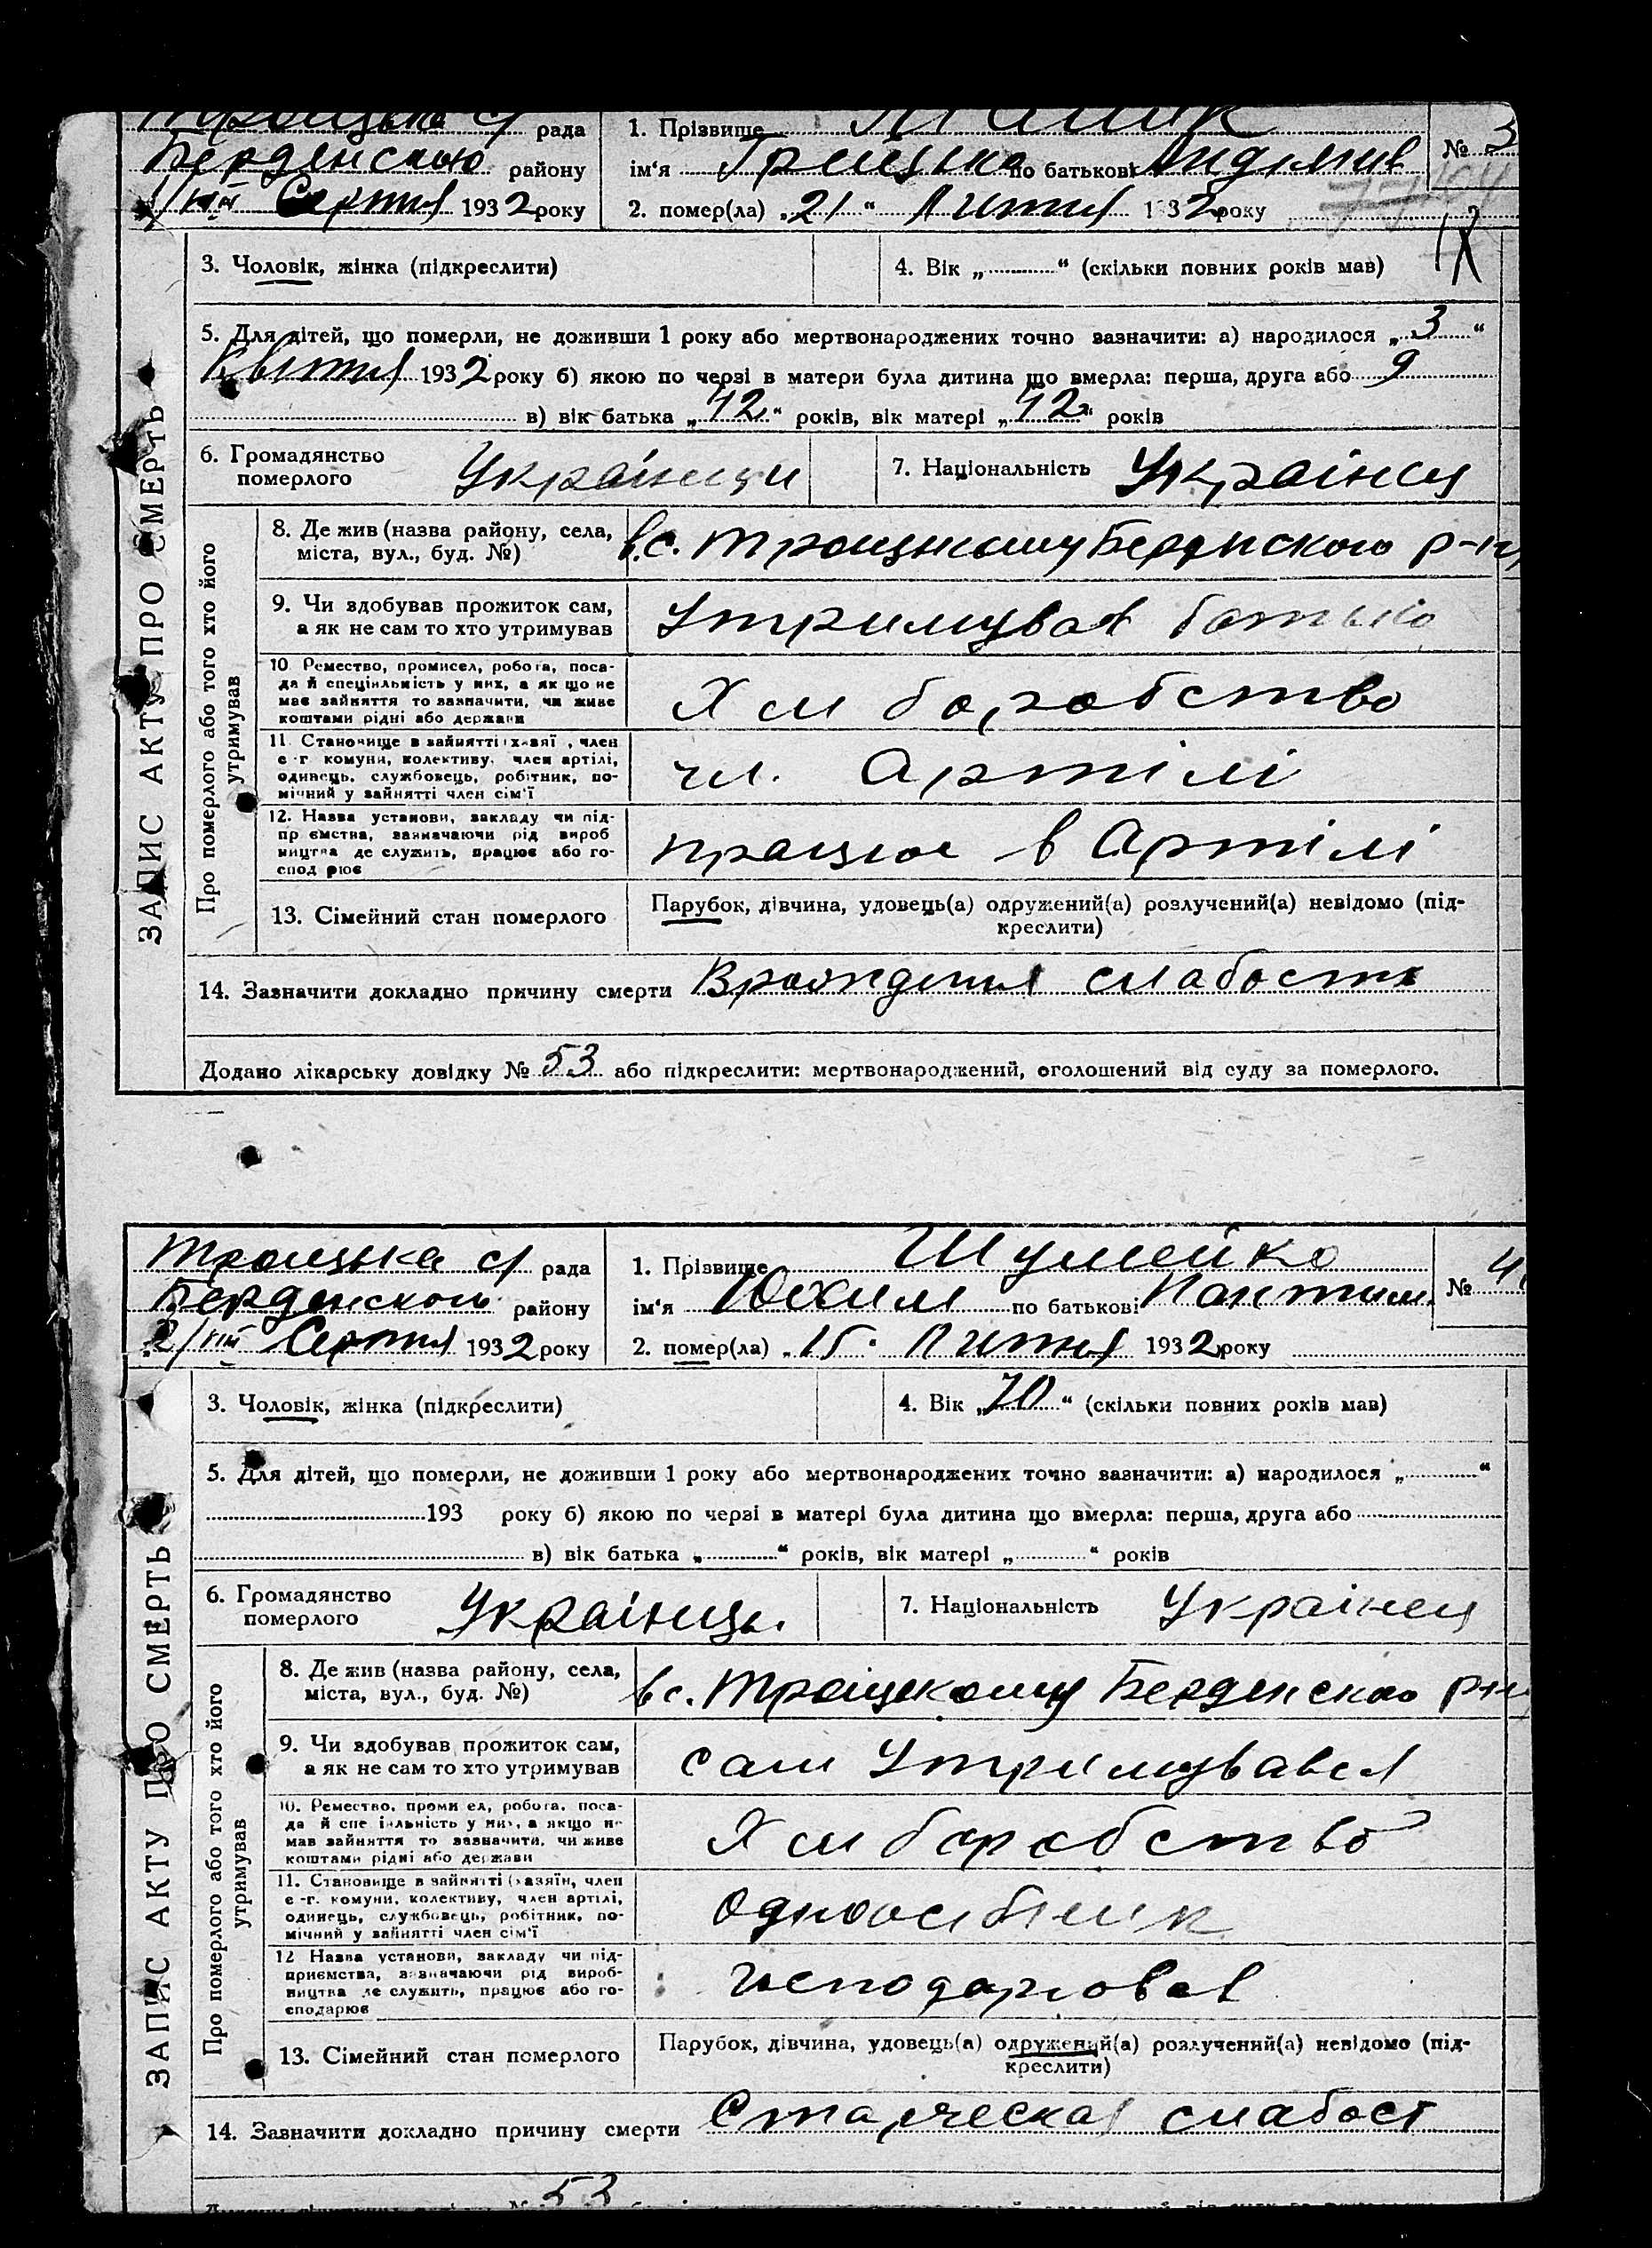 рада
Берденского району
1/VIII Серпня 1932 року
1. Прізвище
ім'я Грицько по батькові
2. помер(ла) „21“ Липня 1932 року
№ 3
3. Чоловік, жінка (підкреслити)
4. Вік „............“ (скільки повних років мав)
5. Для дітей, що померли, не доживши 1 року або мертвонароджених точно зазначити: а) народилося „3“
Квітня 1932 року б) якою по черзі в матери була дитина що вмерла: перша, друга або 9
в) вік батька „42“ років, вік матері „42“ років
6. Громадянство
померлого
Українци
7. Національність Українец
ЗАПИС АКТУ ПРО СМЕРТЬ
Про померлого або того хто його
утримував
8. Де жив (назва району, села,
міста, вул., буд. №)
в с. Троицкому Берденского р-ну
9. Чи здобував прожиток сам,
а як не сам то хто утримував
Утримував батько
10. Ремество, промисел, робота, поса-
да й спеціяльність у них, а як що не
має зайняття то зазначити, чи живе
коштами рідні або держави
Хлиборобство
11. Становище в зайнятті (хазяї , член
с-г. комуни, колективу, член артілі,
одинець, службовець, робітник, по-
мічний у зайнятті член сім'ї
чл. Артілі
12. Назва установи, закладу чи під-
пр ємства, зазначаючи рід вироб
ництва де служить, працює або го-
спод рює
працює в Артілі
13. Сімейний стан померлого
Парубок, дівчина, удовець(а) одружений(а) розлучений(а) невідомо (під-
креслити)
14. Зазначити докладно причину смерти Врожденая слабость
Додано лікарську довідку № 53 або підкреслити: мертвонароджений, оголошений від суду за померлого.
Троицька с/ рада
Берденского району
2/VIII Серпня 1932 року
1. Прізвище Шумейко
ім'я Юхим по батькові Пантим.
2. помер(ла) „15“ Липня 1932 року
№ 4
3. Чоловік, жінка (підкреслити)
4. Вік „70“ (скільки повних років мав)
5. Для дітей, що померли, не доживши 1 року або мертвонароджених точно зазначити: а) народилося „............“
193 року б) якою по черзі в матері була дитина що вмерла: перша, друга або
в) вік батька „............“ років, вік матері „............“ років
6. Громадянство
померлого
Українци
7. Національність Українец
ЗАПИС АКТУ ПРО СМЕРТЬ
Про померлого або того хто його
утримував
8. Де жив (назва району, села,
міста, вул., буд. №)
в с. Троицкому Берденского р-н
9. Чи здобував прожиток сам,
а як не сам то хто утримував
сам утримувався
10. Ремество, проми ел, робота, поса-
да й спе іяльність у них, а якщо н
мав зайняття то зазначити, чи живе
коштами рідні або держави
Хлиборобство
11. Становище в зайнятті (хазяїн, член
с-г. комуни, колективу, член артілі,
одинець, службовець, робітник, по-
мічний у зайнятті член сім'ї
Одноосібник
12 Назва установи, закладу чи під-
приємства, зазначаючи рід вироб-
ництва де служить, працює або го-
сподарює
господарював
13. Сімейний стан померлого
Парубок, дівчина, удовець(а) одружений(а) розлучений(а) невідомо (під-
креслити)
14. Зазначити докладно причину смерти Старческая слабост
53